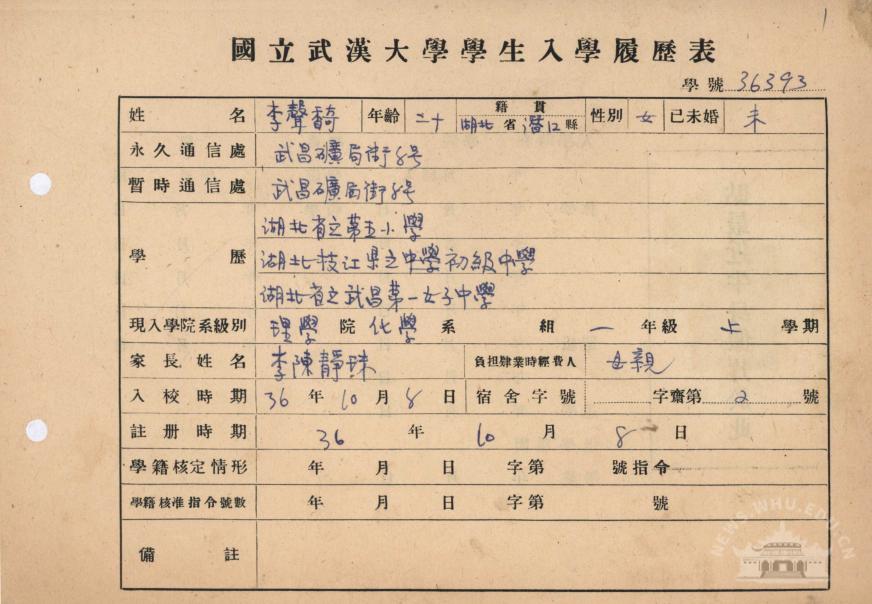 1
國立武漢大學學生入學履歷表
學號 36393
姓名 李聲馩 年齡 二十 籍貫 湖北省潛江縣 性別 女 已未婚 未
永久通信處 武昌礦局街8号
暫時通信處 武昌礦局街8号
學歷 湖北省立第五小學
湖北枝江県立中學初級中學
湖北省立武昌第一女子中學
現入學院系級別 理學院 化學系 組 一年級 上學期
家長姓名 李陳靜珠 負担肄業時經費人 母親
入校時期 36年10月8日 宿舍字號 字齋第2號
註册時期 36年10月8日
學籍核定情形 年 月 日 字第 號指令
學籍核准指令號數 年 月 日 字第 號
備註
NEWS.WHU.EDU.CN